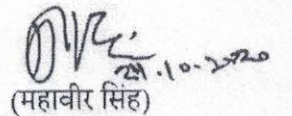 29.10.2020
(महावीर सिंह)